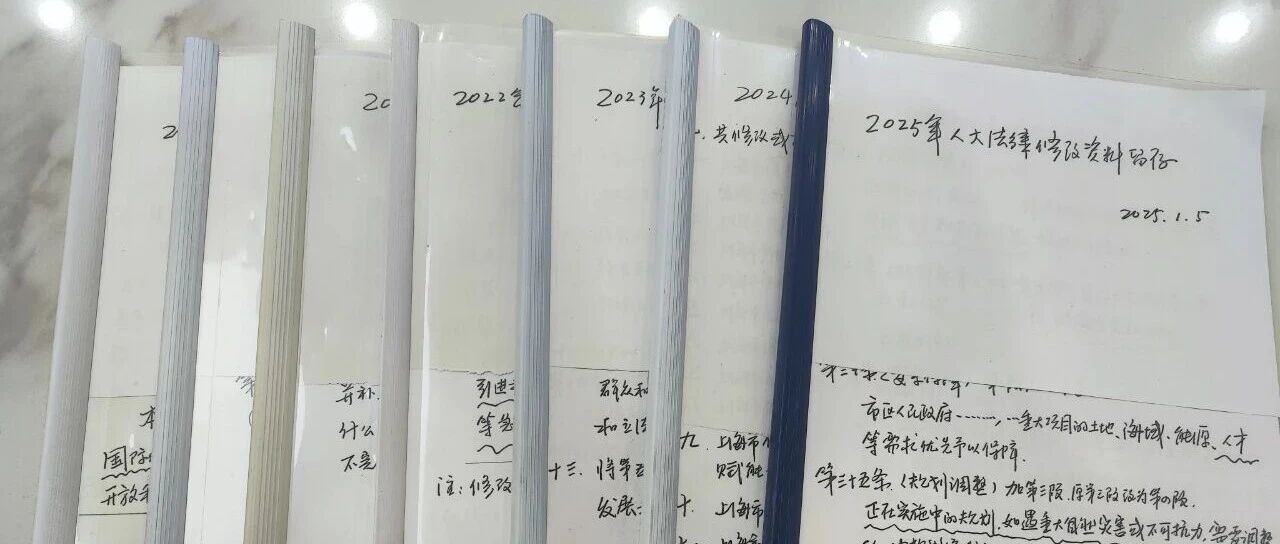 2022年
2023年
2024
2025年人大法律修改资料留存
2025.1.5
一、共修改或
国际
开放
并补
什么
不是
引进
等
注：修改
群众和
和立法
十三、将第五
发展
九、上海市
赋能
十、上海市
市区人民政府………，…重大项目的土地、海域、能源、人才
等需求优先予以保障。
第三十五条（规划调整）加第三段，原第三段改为第四段。
正在实施中的规划，如遇重大自然灾害或不可抗力，需要调整